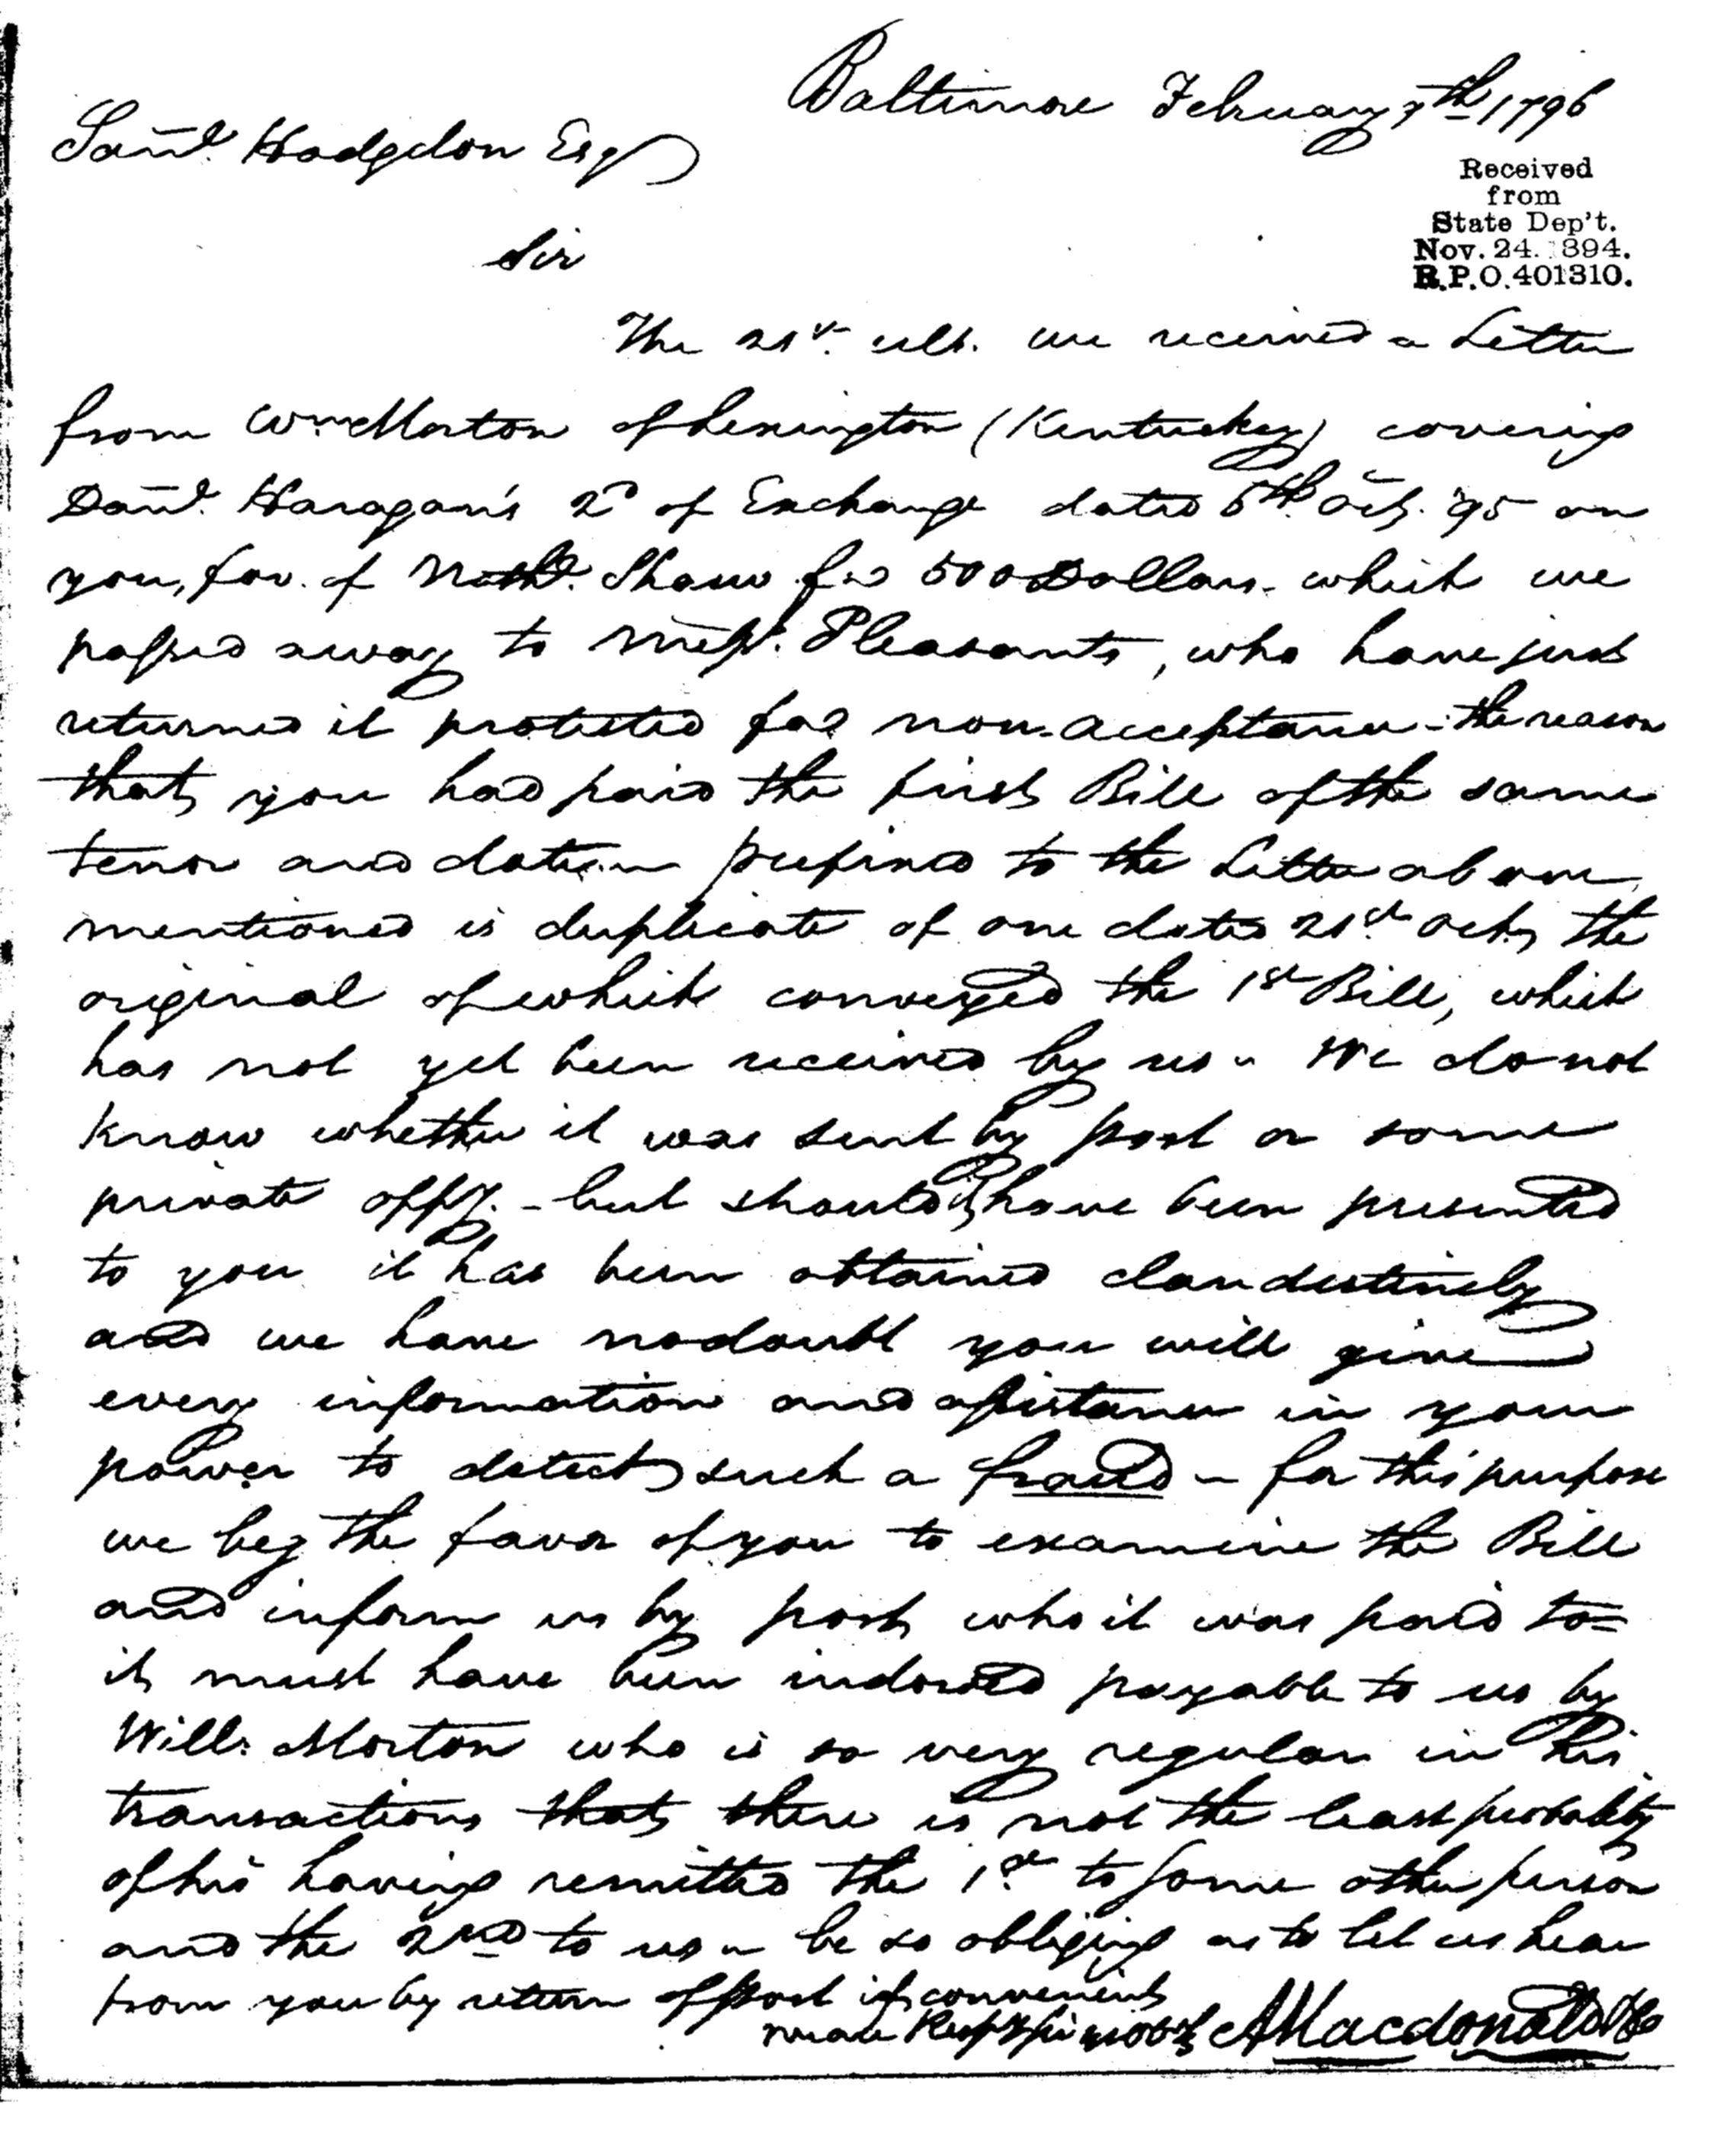 Baltimore February 7th 1796
Saml. Hodgdon Esq
Received
from
State Dep't.
Nov. 24. 1894.
R.P.O. 401310.
Sir
The 21st. ult. we received a Letter
from Wm Morton of Lexington (Kentucky) covering
Danl. Haragan's 2d of Exchange dated 5th Oct. '95 on
you, fav. of Nathl. Shaw for 500 Dollars - which we
passed away to Messrs. Pleasants, who have just
returned it protested for non-acceptance - the reason
that you had paid the first Bill of the same
tenor and date - prefixed to the Letter above
mentioned is duplicate of one dated 21st Oct, the
original of which conveyed the 1st Bill, which
has not yet been received by us - We do not
know whether it was sent by post or some
private oppy. - but should it have been presented
to you it has been obtained clandestinely
and we have no doubt you will give
every information and assistance in your
power to detect such a fraud - for this purpose
we beg the favor of you to examine the Bill
and inform us by post who it was paid to =
it must have been indorsed payable to us by
Will. Morton who is so very regular in his
transactions that there is not the least probability
of his having remitted the 1st to some other person
and the 2nd to us - be so obliging as to let us hear
from you by return of post if convenient
A Macdonald & Co